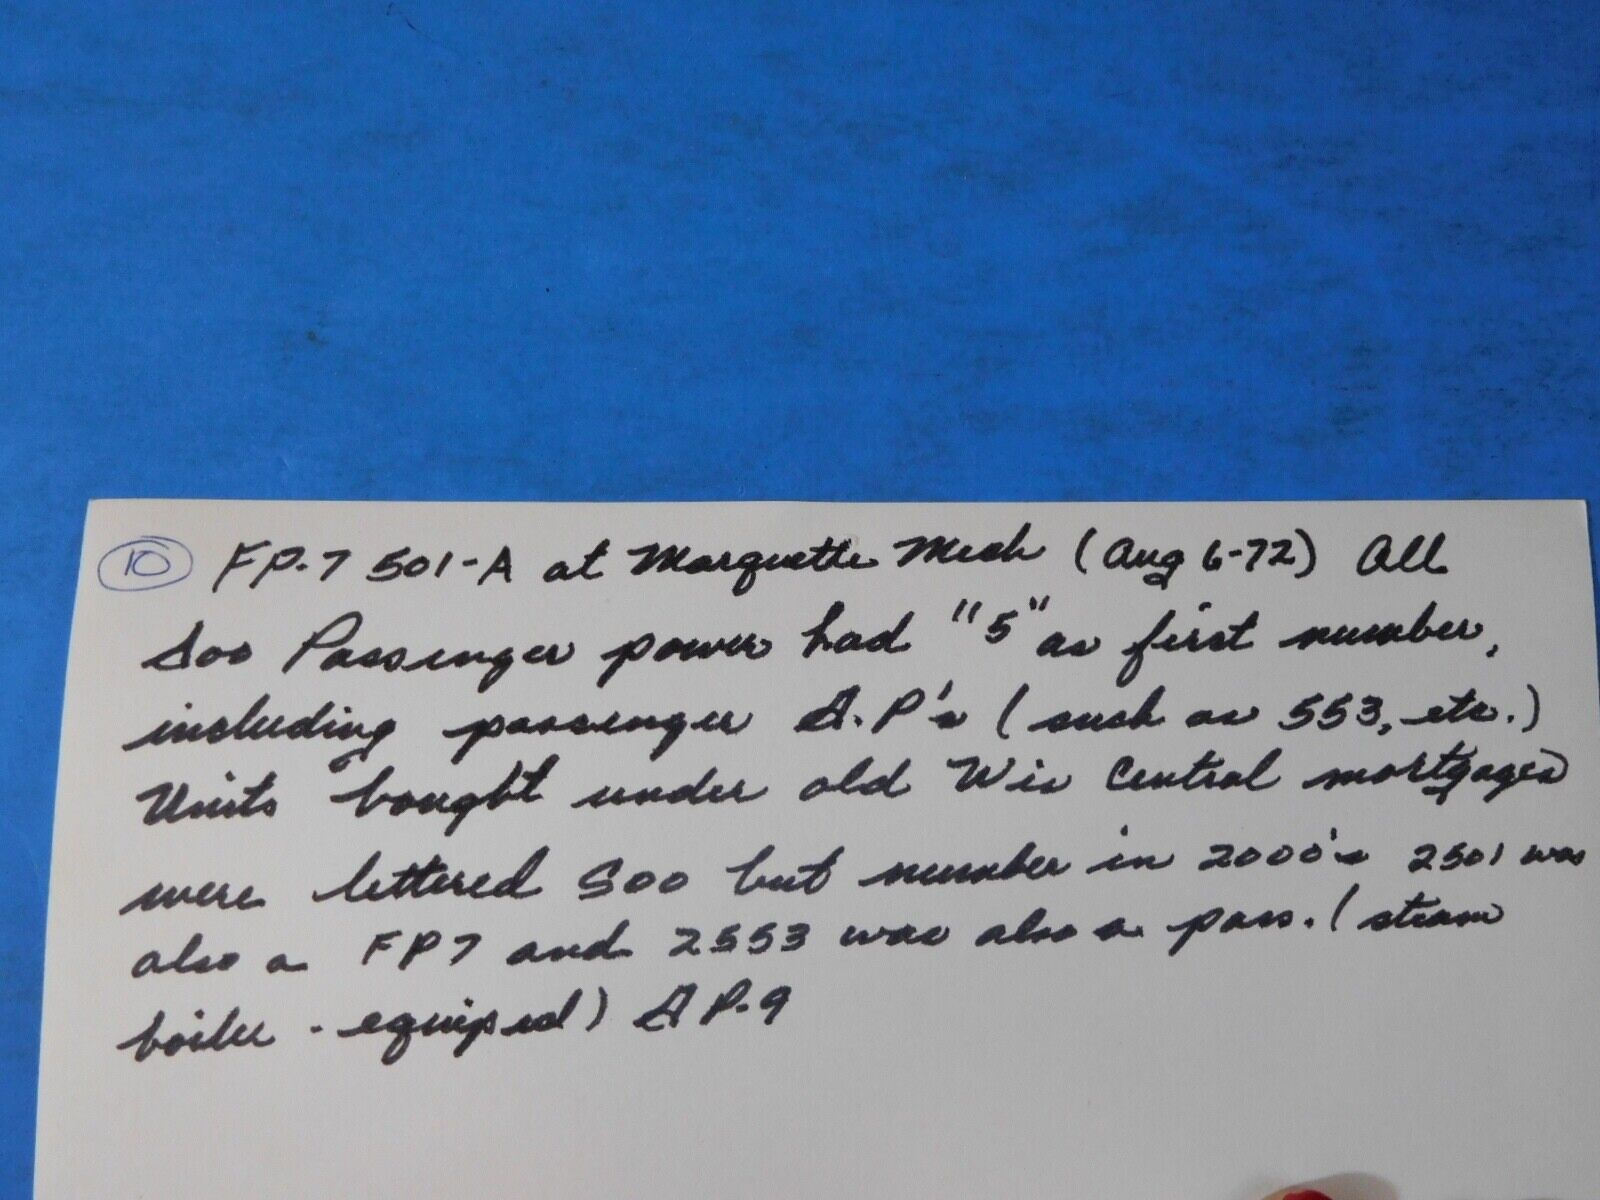 10 FP-7 501-A at Marquette Mich (Aug 6-72) All
Soo Passenger power had "5" as first number,
including passenger G.P's (such as 553, etc.)
Units bought under old Wis Central mortgages
were lettered Soo but number in 2000's 2501 was
also a FP7 and 2553 was also a pass. (steam
boiler - equiped) GP-9